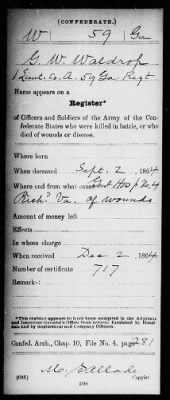 (CONFEDERATE.)
W 59 Ga
G. W. Waldrop
1 Lieut. Co. A. 59 Ga. Regt
Name appears on a
Register*
of Officers and Soldiers of the Army of the Con-
federate States who were killed in battle, or who
died of wounds or disease.
Where born
When deceased Sept. 2, 1864
Where and from what cause Genl Hosp No. 4
Richd Va. of wounds
Amount of money left
Effects
In whose charge
When received Dec 2, 1864
Number of certificate 717
Remarks:
*This register appears to have been compiled in the Adjutant
and Inspector General's Office from returns furnished by Hospi-
tals and by Regimental and Company Officers.
Confed. Arch., Chap. 10, File No. 4, page 281
Copyist.